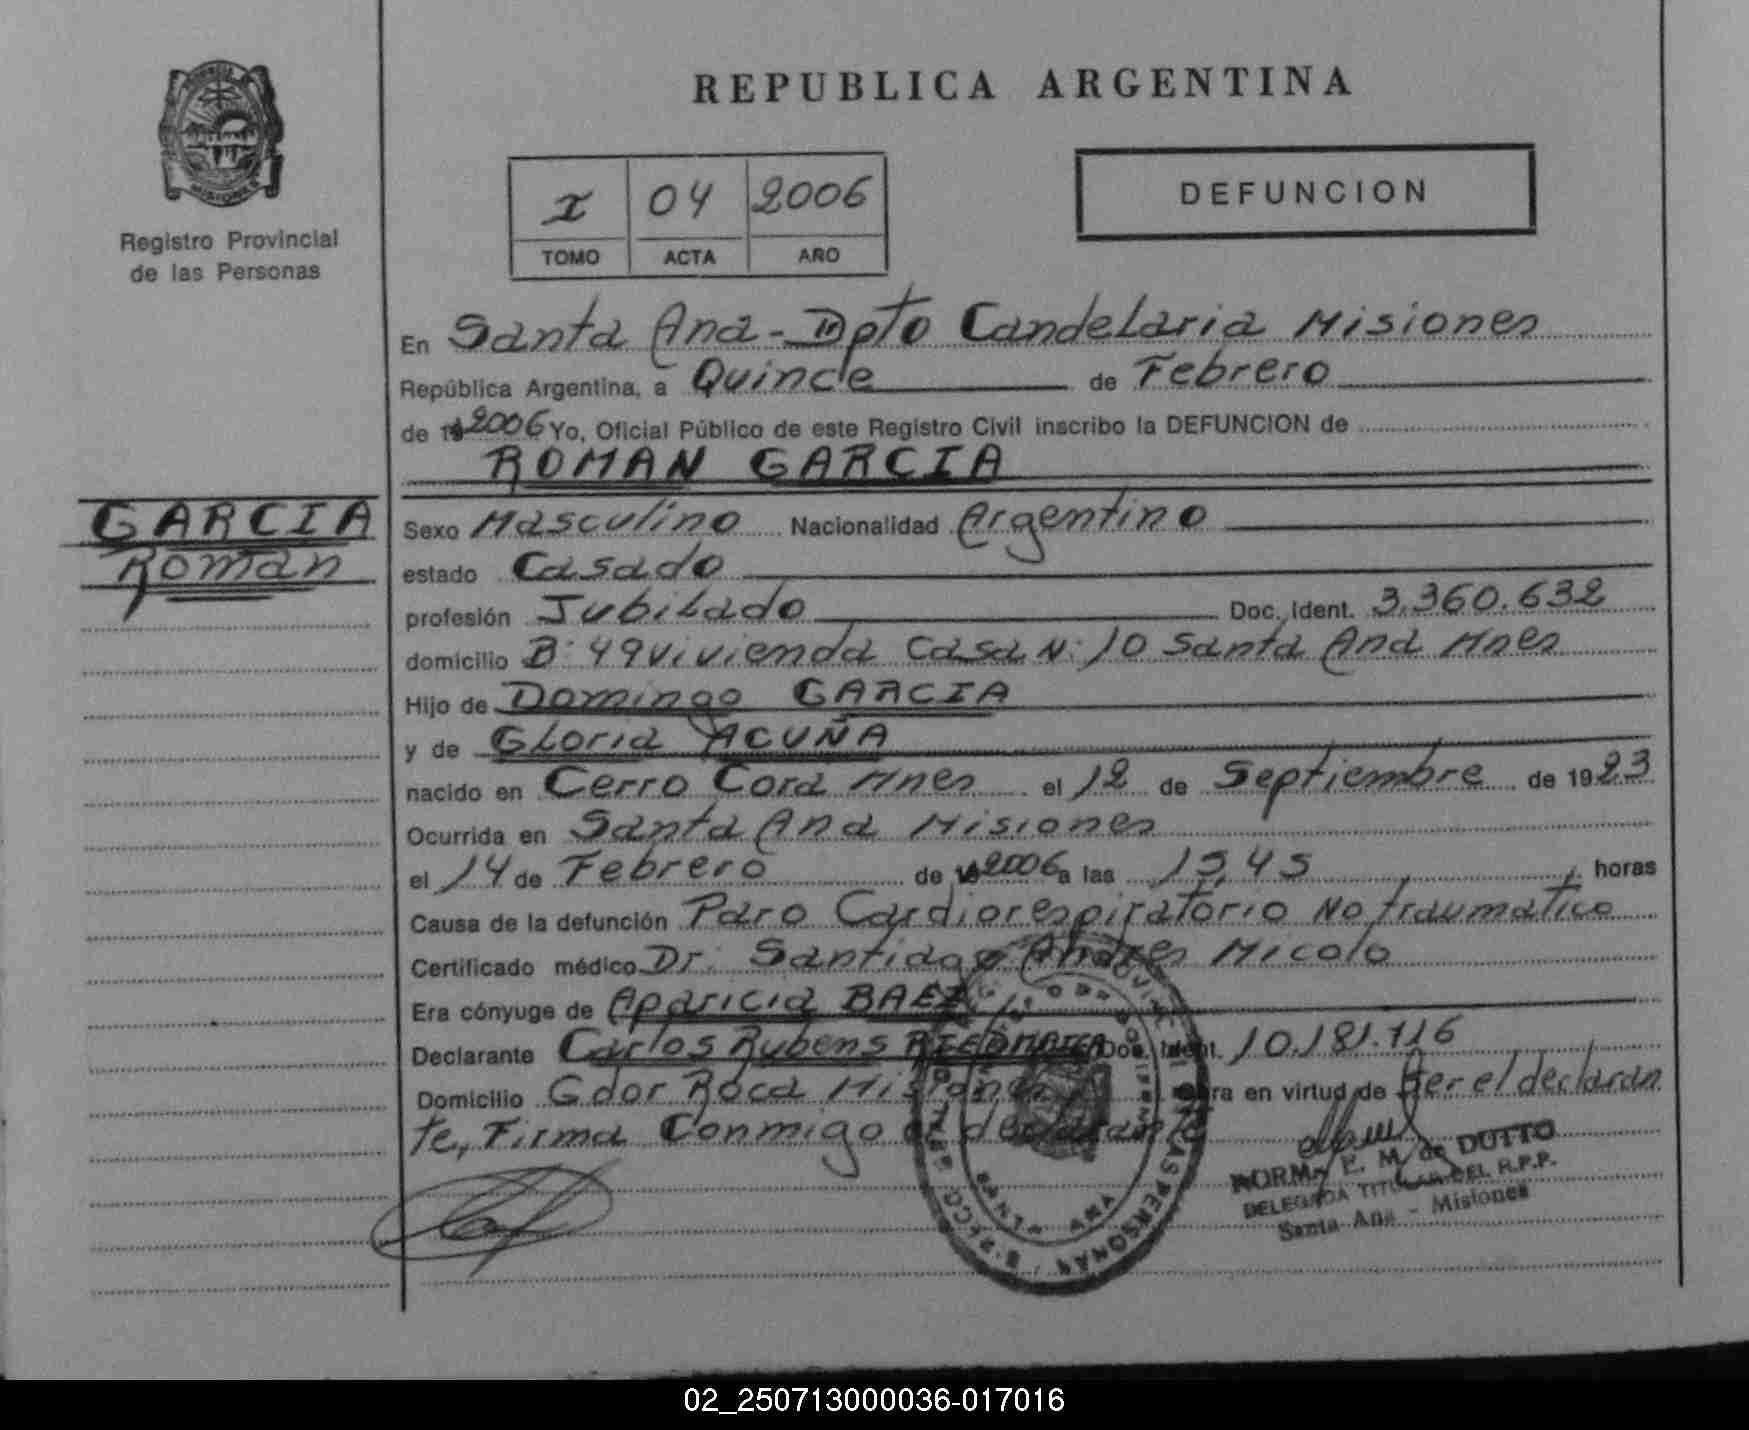 REPUBLICA ARGENTINA
Registro Provincial
de las Personas
I 04 2006
TOMO ACTA AÑO
DEFUNCION
En Santa Ana - Dpto Candelaria Misiones
República Argentina, a Quince de Febrero
de 2006 Yo, Oficial Público de este Registro Civil inscribo la DEFUNCION de
ROMAN GARCIA
GARCIA
Roman
Sexo Masculino Nacionalidad Argentino
estado Casado
profesión Jubilado Doc. Ident. 3.360.632
domicilio B: 49 vivienda Casa N: 10 Santa Ana Mnes
Hijo de Domingo GARCIA
y de Gloria ACUÑA
nacido en Cerro Cora Mnes el 12 de Septiembre de 1923
Ocurrida en Santa Ana Misiones
el 14 de Febrero de 2006 a las 15,45 horas
Causa de la defunción Paro Cardiorespiratorio No traumatico
Certificado médico Dr. Santiago Micolo
Era cónyuge de Aparicia BAEZ
Declarante Carlos Rubens Doc. Ident. 10.181.716
Domicilio Gdor Roca Misiones Obra en virtud de Ser el declaran
te, Firma Conmigo el declarante
NORMA E. M. de DUTTO
DELEGADA TITULAR DEL R.P.P.
Santa Ana - Misiones
SANTA ANA
02_250713000036-017016